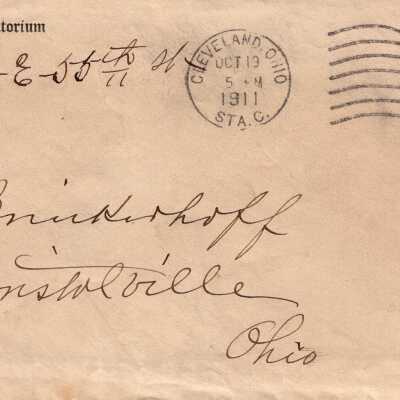 torium
E 55th St
11
CLEVELAND, OHIO
OCT 19
5 M
1911
STA. C.
rinkerhoff
ristolville
Ohio